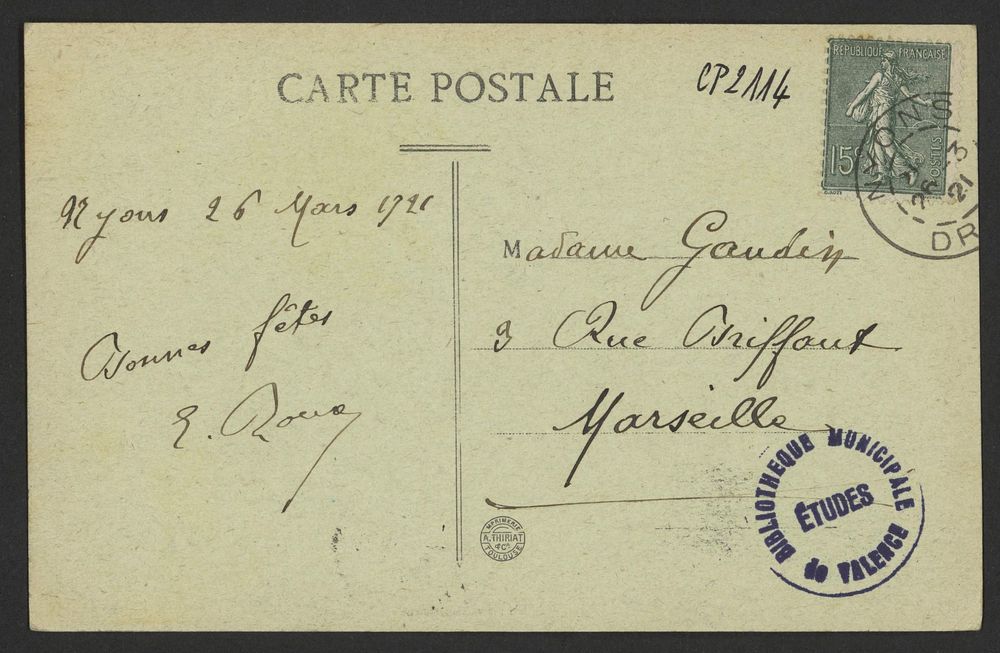 CARTE POSTALE
CP2114
RÉPUBLIQUE FRANÇAISE
15c
POSTES
NYONS
26 -3
21
DR
Nyons 26 Mars 1921
Bonnes fêtes
E. Roux
Madame Gaudin
3 Rue Briffaut
Marseille
IMPRIMERIE
A. THIRIAT
& Cie
TOULOUSE
BIBLIOTHEQUE MUNICIPALE
ÉTUDES
de VALENCE